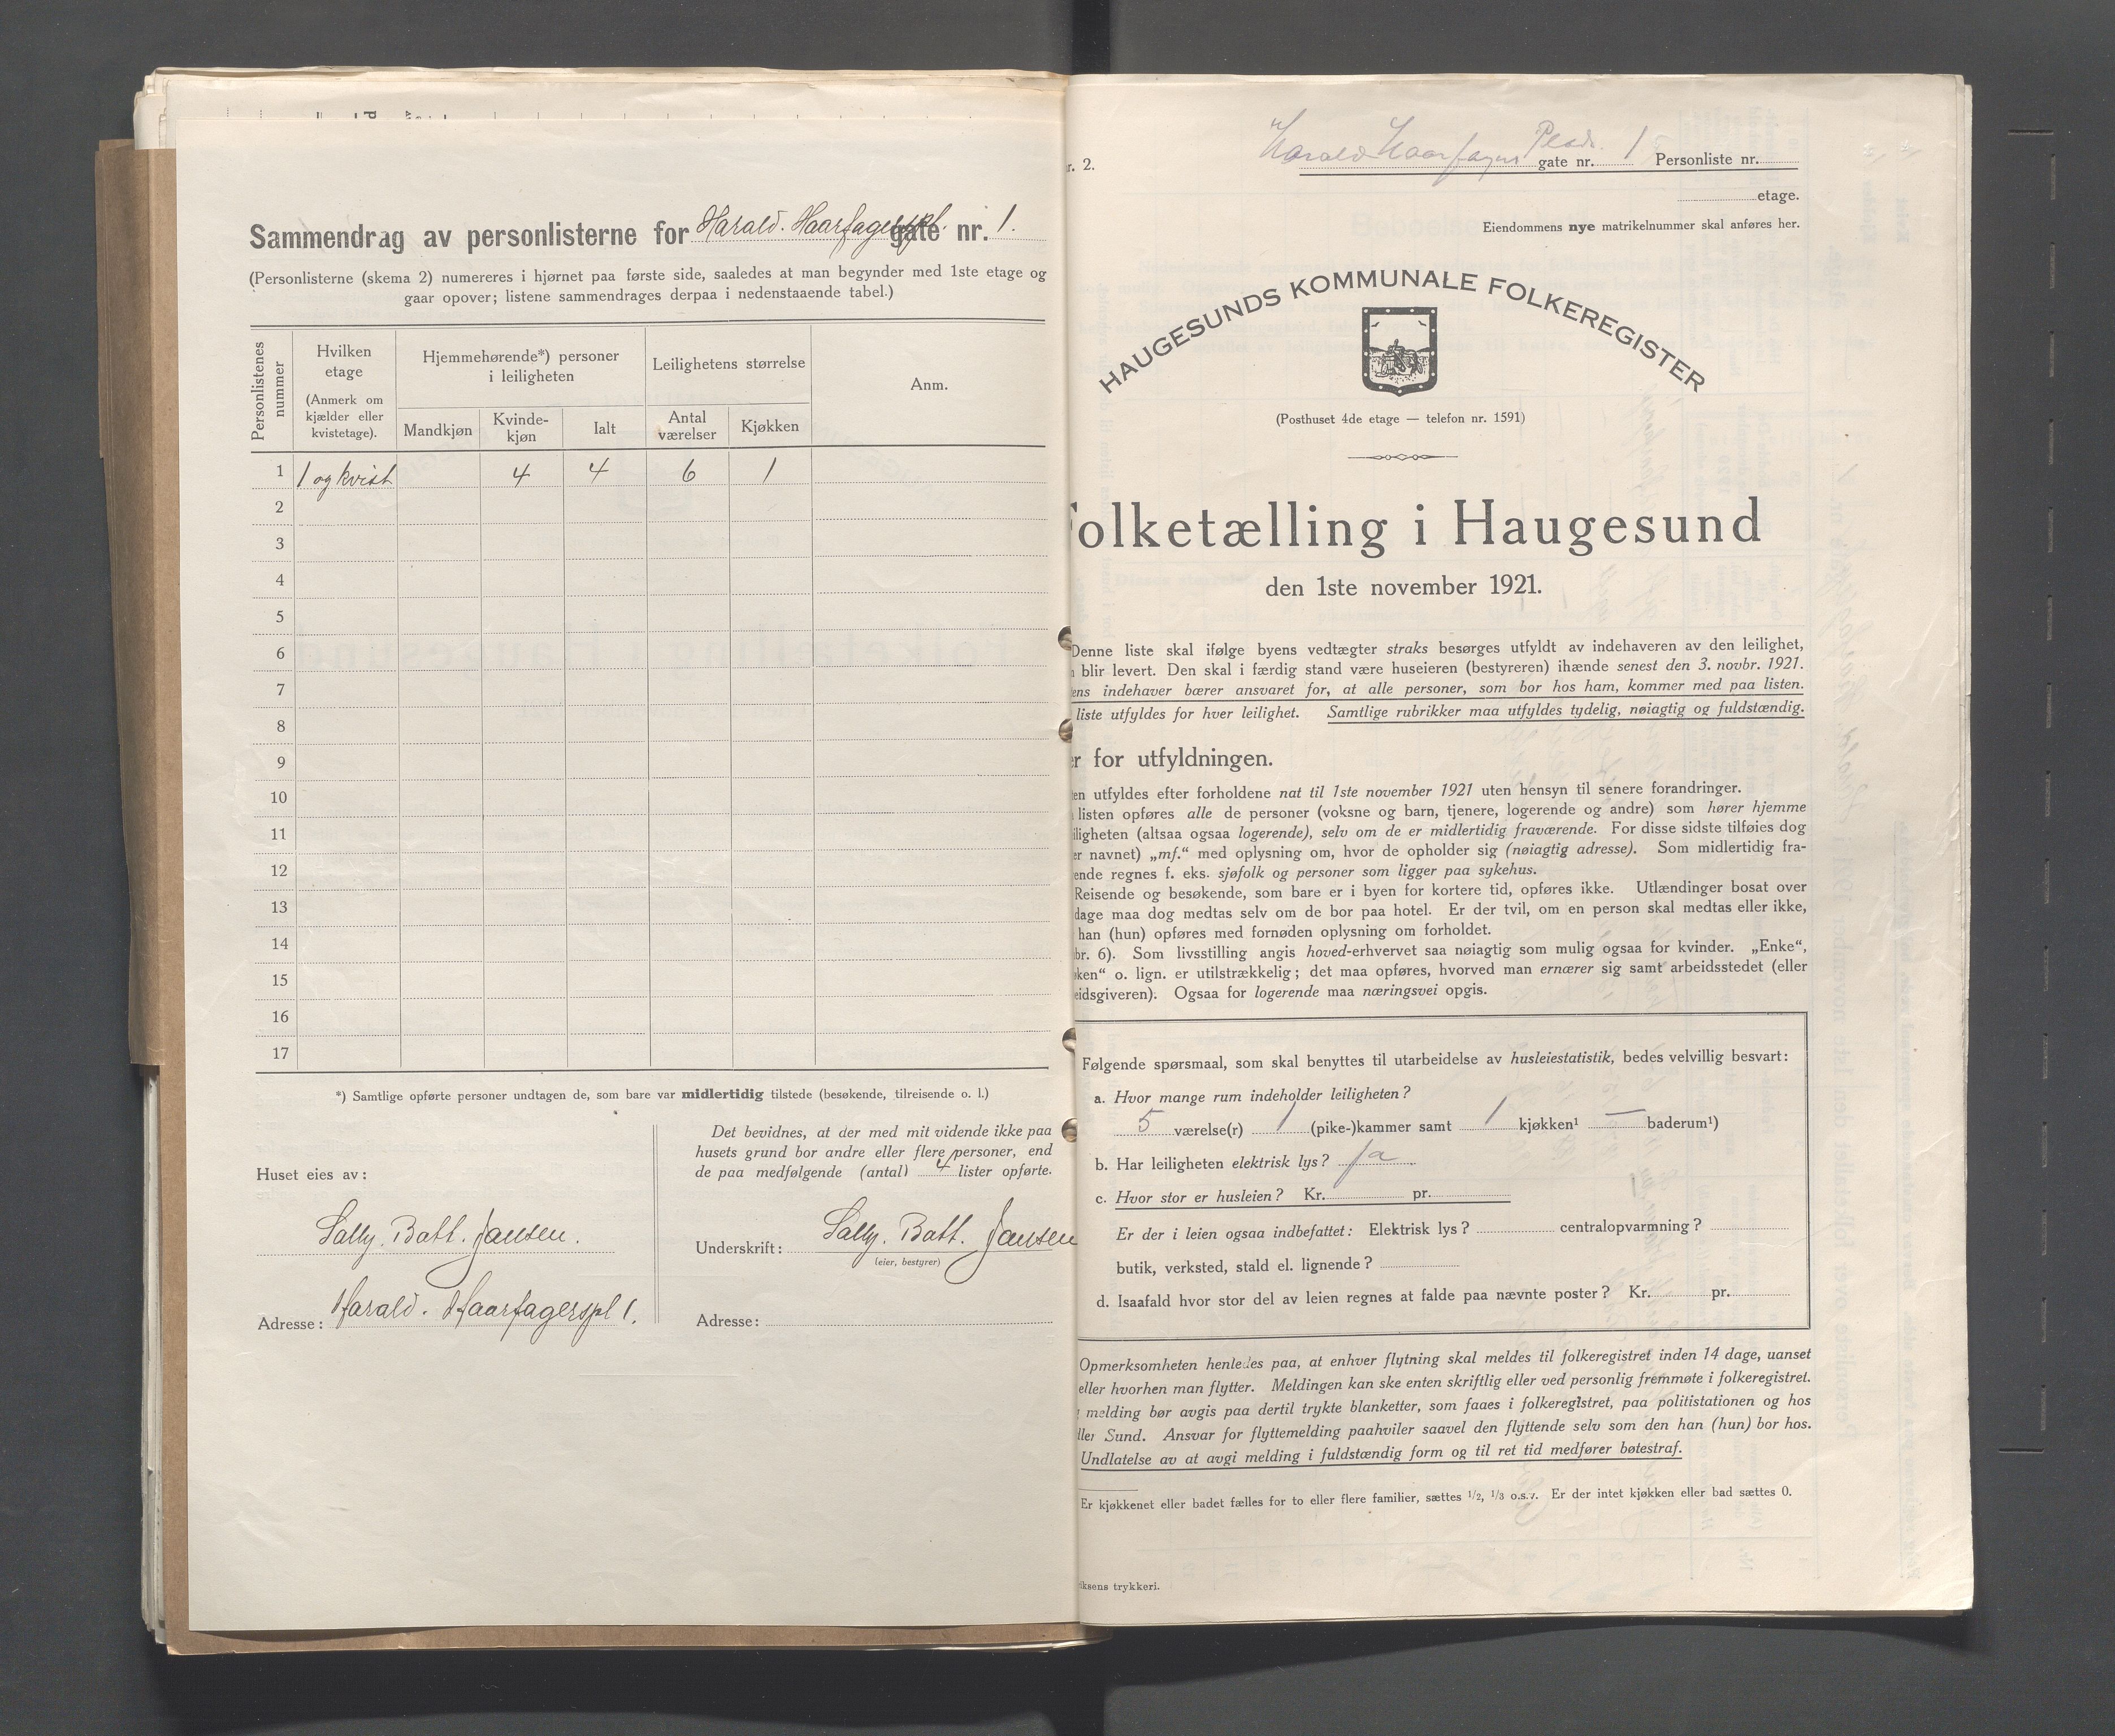 Sammendrag av personlisterne for Harald. Haarfagerspl. gate nr. 1.
(Personlisterne (skema 2) numereres i hjørnet paa første side, saaledes at man begynder med 1ste etage og
gaar opover; listene sammendrages derpaa i nedenstaaende tabel.)
Personlistenes nummer
Hvilken etage
(Anmerk om kjælder eller kvistetage).
Hjemmehørende*) personer i leiligheten
Mandkjøn
Kvinde-kjøn
Ialt
Leilighetens størrelse
Antal værelser
Kjøkken
Anm.
1 1 og kvist 4 4 6 1
2
3
4
5
6
7
8
9
10
11
12
13
14
15
16
17
*) Samtlige opførte personer undtagen de, som bare var midlertidig tilstede (besøkende, tilreisende o. l.)
Huset eies av:
Sally. Batt. Jansen.
Adresse: Harald. Haarfagerspl 1.
Det bevidnes, at der med mit vidende ikke paa
husets grund bor andre eller flere personer, end
de paa medfølgende (antal) 4 lister opførte.
Underskrift: Sally. Batt. Jansen
(eier, bestyrer)
Adresse:
r. 2.
Harald Haarfagers Plads. gate nr. 1 Personliste nr.
etage.
Eiendommens nye matrikelnummer skal anføres her.
HAUGESUNDS KOMMUNALE FOLKEREGISTER
(Posthuset 4de etage — telefon nr. 1591)
Folketælling i Haugesund
den 1ste november 1921.
Denne liste skal ifølge byens vedtægter straks besørges utfyldt av indehaveren av den leilighet,
blir levert. Den skal i færdig stand være huseieren (bestyreren) ihænde senest den 3. novbr. 1921.
ens indehaver bærer ansvaret for, at alle personer, som bor hos ham, kommer med paa listen.
liste utfyldes for hver leilighet. Samtlige rubrikker maa utfyldes tydelig, nøiagtig og fuldstændig.
er for utfyldningen.
en utfyldes efter forholdene nat til 1ste november 1921 uten hensyn til senere forandringer.
listen opføres alle de personer (voksne og barn, tjenere, logerende og andre) som hører hjemme
iligheten (altsaa ogsaa logerende), selv om de er midlertidig fraværende. For disse sidste tilføies dog
er navnet) „mf.“ med oplysning om, hvor de opholder sig (nøiagtig adresse). Som midlertidig fra-
ende regnes f. eks. sjøfolk og personer som ligger paa sykehus.
Reisende og besøkende, som bare er i byen for kortere tid, opføres ikke. Utlændinger bosat over
dage maa dog medtas selv om de bor paa hotel. Er der tvil, om en person skal medtas eller ikke,
han (hun) opføres med fornøden oplysning om forholdet.
br. 6). Som livsstilling angis hoved-erhvervet saa nøiagtig som mulig ogsaa for kvinder. „Enke“,
øken“ o. lign. er utilstrækkelig; det maa opføres, hvorved man ernærer sig samt arbeidsstedet (eller
eidsgiveren). Ogsaa for logerende maa næringsvei opgis.
Følgende spørsmaal, som skal benyttes til utarbeidelse av husleiestatistik, bedes velvillig besvart:
a. Hvor mange rum indeholder leiligheten?
5 værelse(r) 1 (pike-)kammer samt 1 kjøkken¹ — baderum¹)
b. Har leiligheten elektrisk lys? ja
c. Hvor stor er husleien? Kr. pr.
Er der i leien ogsaa indbefattet: Elektrisk lys? centralopvarmning?
butik, verksted, stald el. lignende?
d. Isaafald hvor stor del av leien regnes at falde paa nævnte poster? Kr. pr.
Opmerksomheten henledes paa, at enhver flytning skal meldes til folkeregistret inden 14 dage, uanset
eller hvorhen man flytter. Meldingen kan ske enten skriftlig eller ved personlig fremmøte i folkeregistret.
melding bør avgis paa dertil trykte blanketter, som faaes i folkeregistret, paa politistationen og hos
ller Sund. Ansvar for flyttemelding paahviler saavel den flyttende selv som den han (hun) bor hos.
Undlatelse av at avgi melding i fuldstændig form og til ret tid medfører bøtestraf.
Er kjøkkenet eller badet fælles for to eller flere familier, sættes 1/2, 1/3 o.s.v. Er der intet kjøkken eller bad sættes 0.
iksens trykkeri.